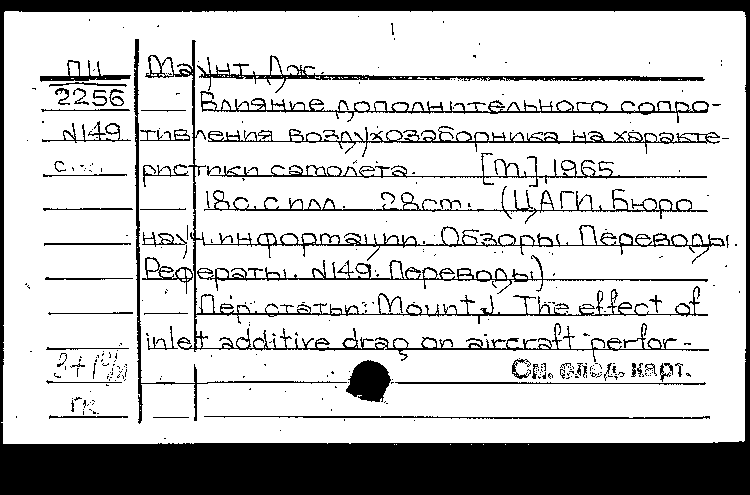 1
ПИ Маунт, Дж.
2256 Влияние дополнительного сопро-
N149 тивления воздухозаборника на характе-
ристики самолета. [М.], 1965.
18с. с илл. 28см. (ЦАГИ. Бюро
науч. информации. Обзоры. Переводы.
Рефераты. N149. Переводы).
Пер. статьи: Mount, J. The effect of
inlet additive drag on aircraft perfor-
См. след. карт.
ГК